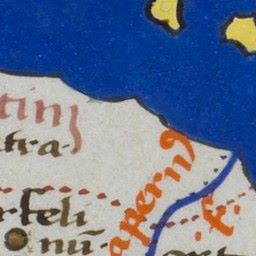 tinj
tra·
rfeli
nū·
apernꝰ
·f·